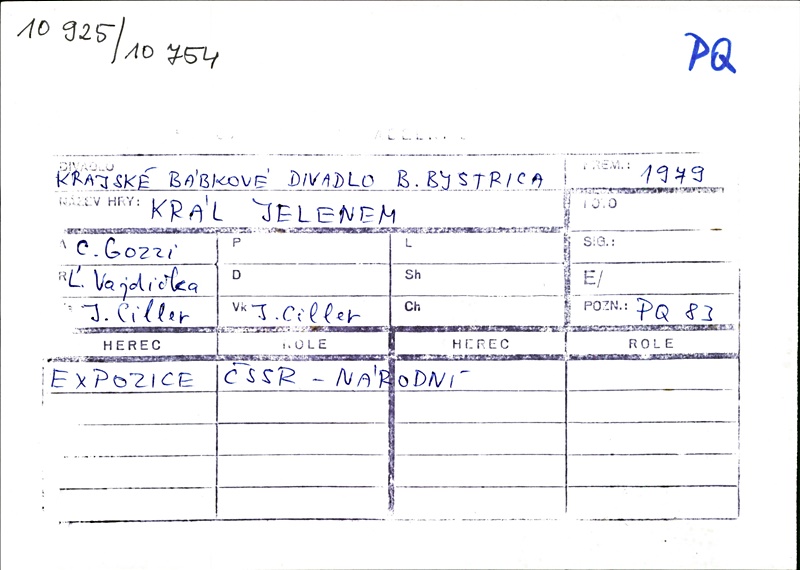 10 925/10 754
PQ
DIVADLO KRAJSKÉ BÁBKOVÉ DIVADLO B. BYSTRICA
PREM.: 1979
NÁZEV HRY: KRÁL JELENEM
FOTO
A C. Gozzi
P
L
SIG.:
R Ľ. Vajdička
D
Sh
E/
J. Ciller
Vk J. Ciller
Ch
POZN.: PQ 83
HEREC ROLE HEREC ROLE
EXPOZICE ČSSR - NÁRODNÍ